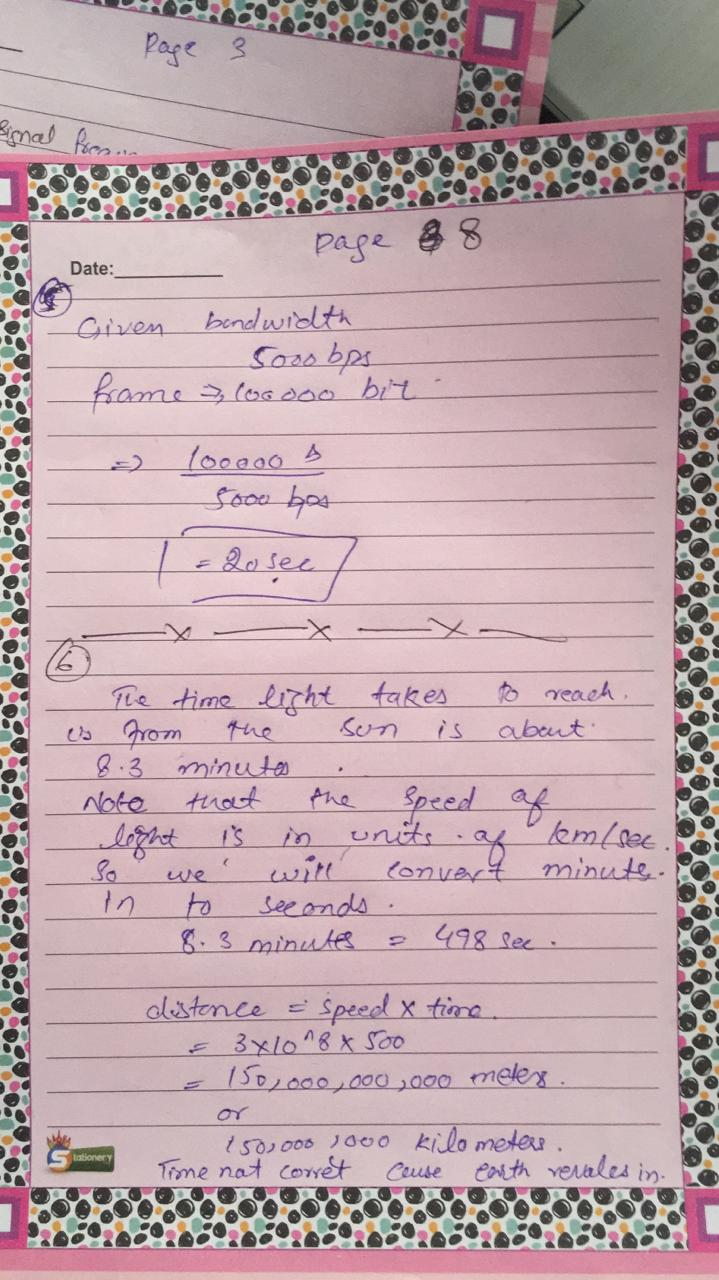 Page 3
Signal
Page 8
Date:
Given bandwidth
5000 bps
frame => 100000 bit
=> 100000 b
5000 bps
= 20 sec
6
The time light takes to reach.
us from the sun is about.
8.3 minutes .
Note that the speed of
light is in units of km/sec.
So we will convert minute.
in to seconds.
8.3 minutes = 498 sec.
distance = speed x time.
= 3x10^8 x 500
= 150,000,000,000 meters.
or
150,000,000 kilometers.
Stationery
Time not corret Cause earth in.